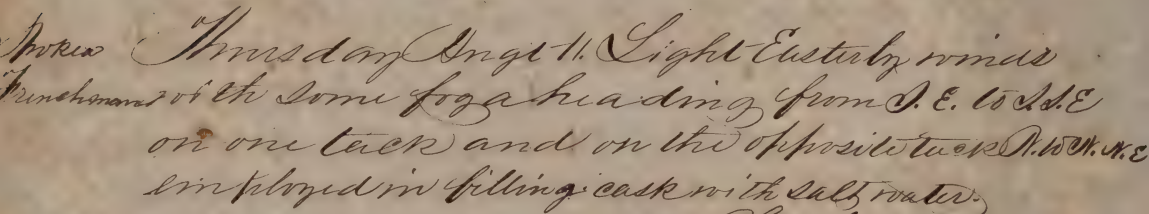 Spoken Thursday Augt 11. Light Easterly winds
Frenchman with some fog a heading from S. E. to S.S.E
on one tack and on the opposite tack N. to N. N. E
employed in filling cask with salt water.